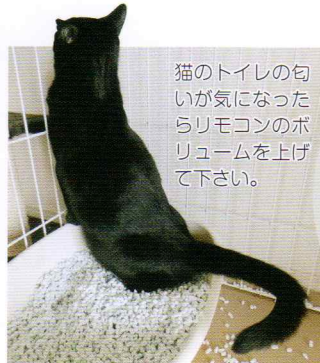 猫のトイレの匂
いが気になった
らリモコンのボ
リュームを上げ
て下さい。